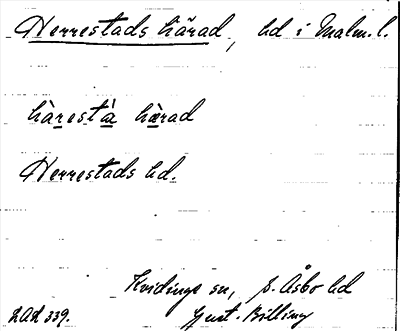 Herrestads härad, hd i Malm.l.
hàrestá hàrad
Herrestads hd.
Kvidinge sn, S. Åsbo hd
LAL 339. Gust. Billing